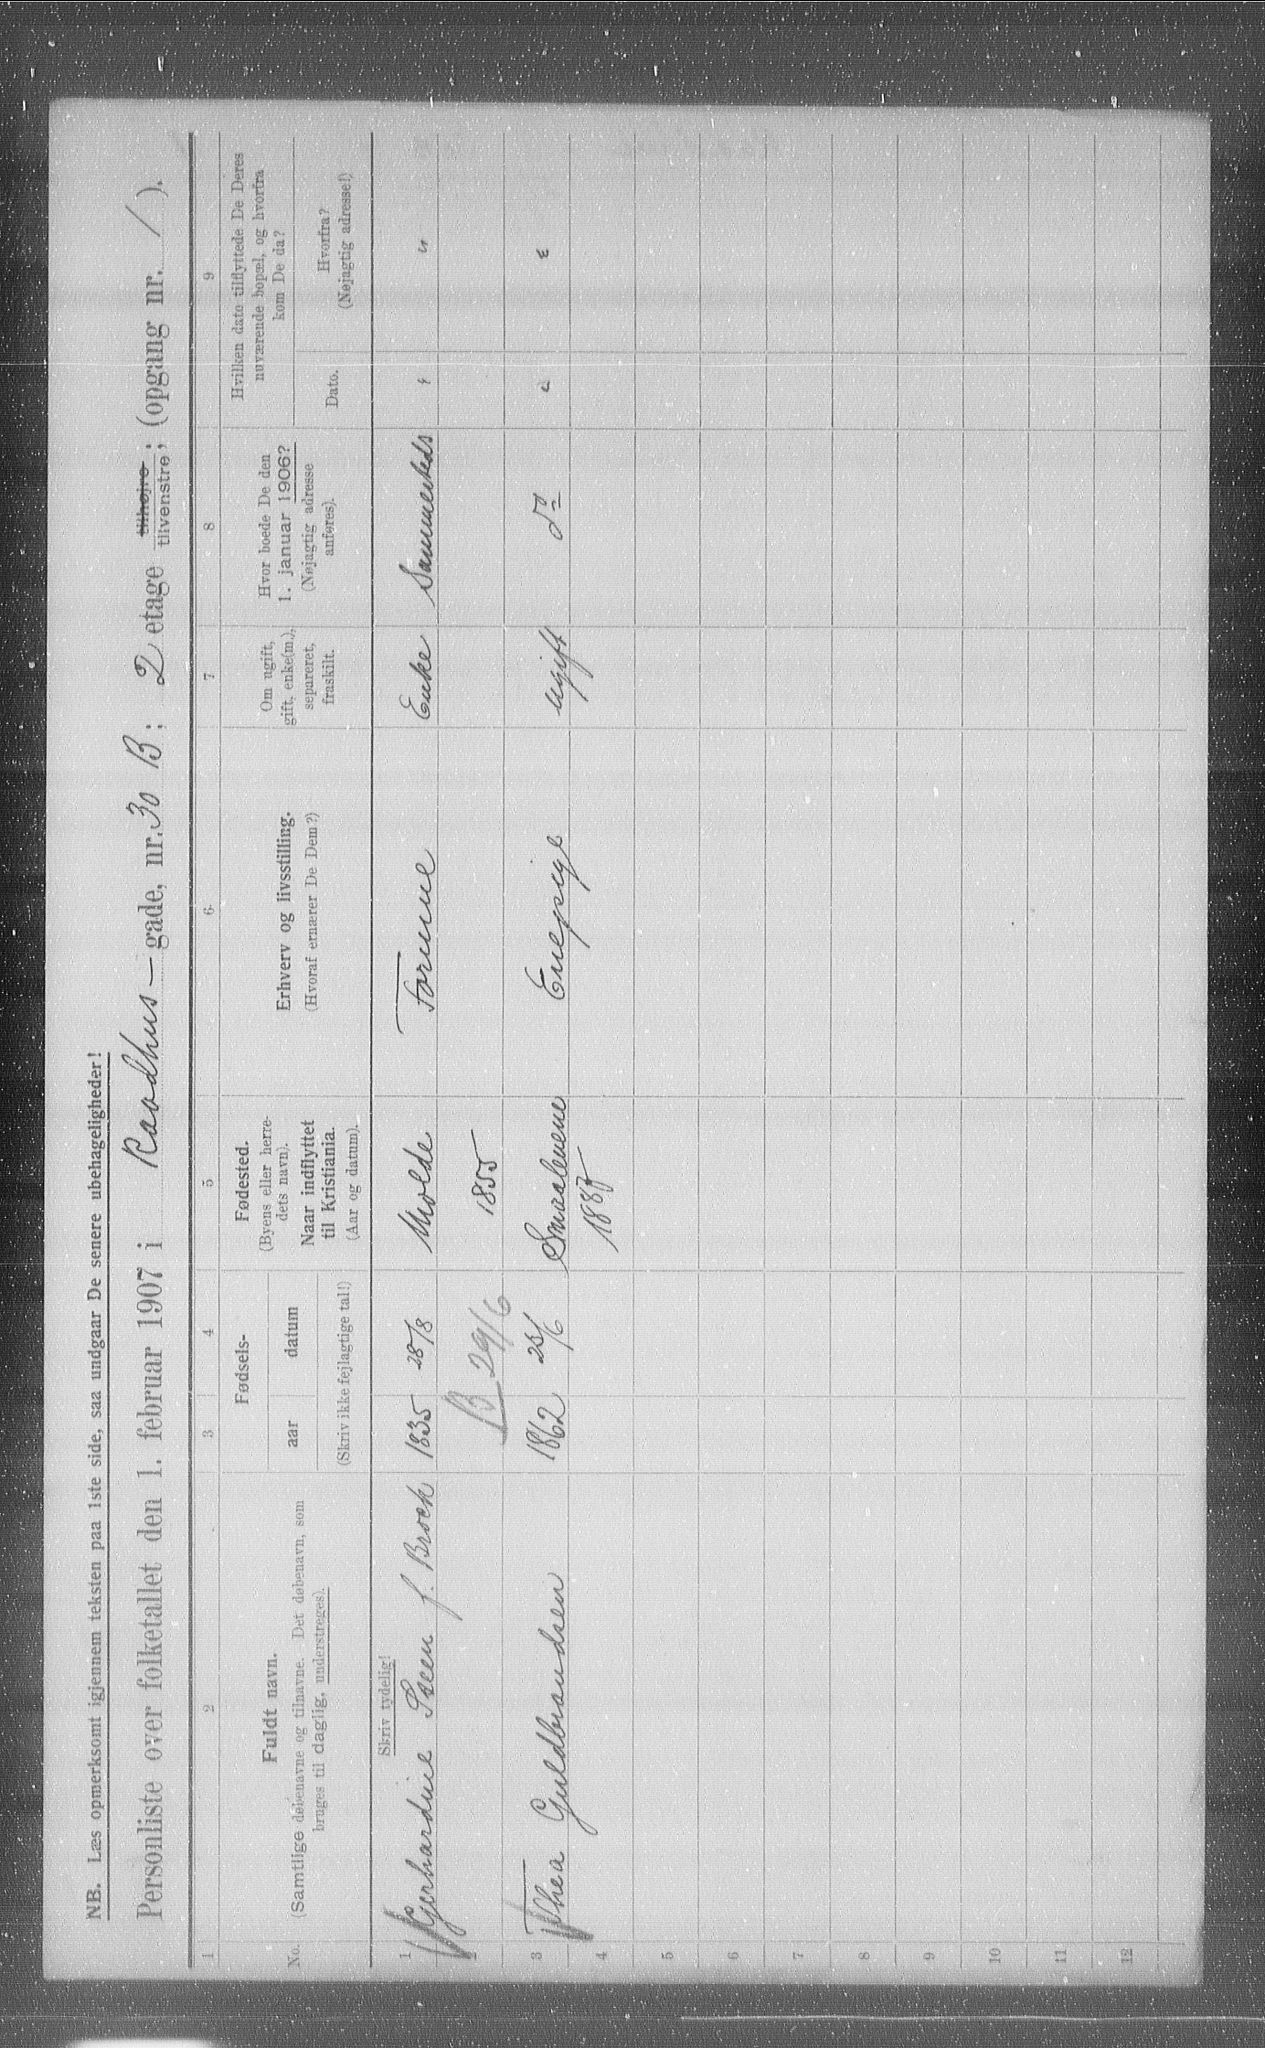 NB. Læs opmerksomt igjennem teksten paa 1ste side, saa undgaar De senere ubehageligheder!
Personliste over folketallet den 1. februar 1907 i Raadhus- gade, nr. 30 B; 2 etage tilhøjre tilvenstre; (opgang nr. / ).
1 2 3 4 5 6 7 8 9
No.
Fuldt navn.
(Samtlige døbenavne og tilnavne. Det døbenavn, som
bruges til daglig, understreges).
Fødsels-
aar datum
(Skriv ikke fejlagtige tal!)
Fødested.
(Byens eller herre-
dets navn).
Naar indflyttet
til Kristiania.
(Aar og datum).
Erhverv og livsstilling.
(Hvoraf ernærer De Dem?)
Om ugift,
gift, enke(m.),
separeret,
fraskilt.
Hvor boede De den
1. januar 1906?
(Nøjagtig adresse
anføres).
Hvilken dato tilflyttede De Deres
nuværende bopæl, og hvorfra
kom De da?
Dato.
Hvorfra?
(Nøjagtig adresse!)
Skriv tydelig!
1 Gerhardine Steen f. Brock 1835 28/8 Molde Formue Enke Sammesteds " "
2 B 29/6 1855
3 Thea Guldbrandsen 1862 25/6 Smaalenene Enepige ugift do " "
4 1887
5
6
7
8
9
10
11
12